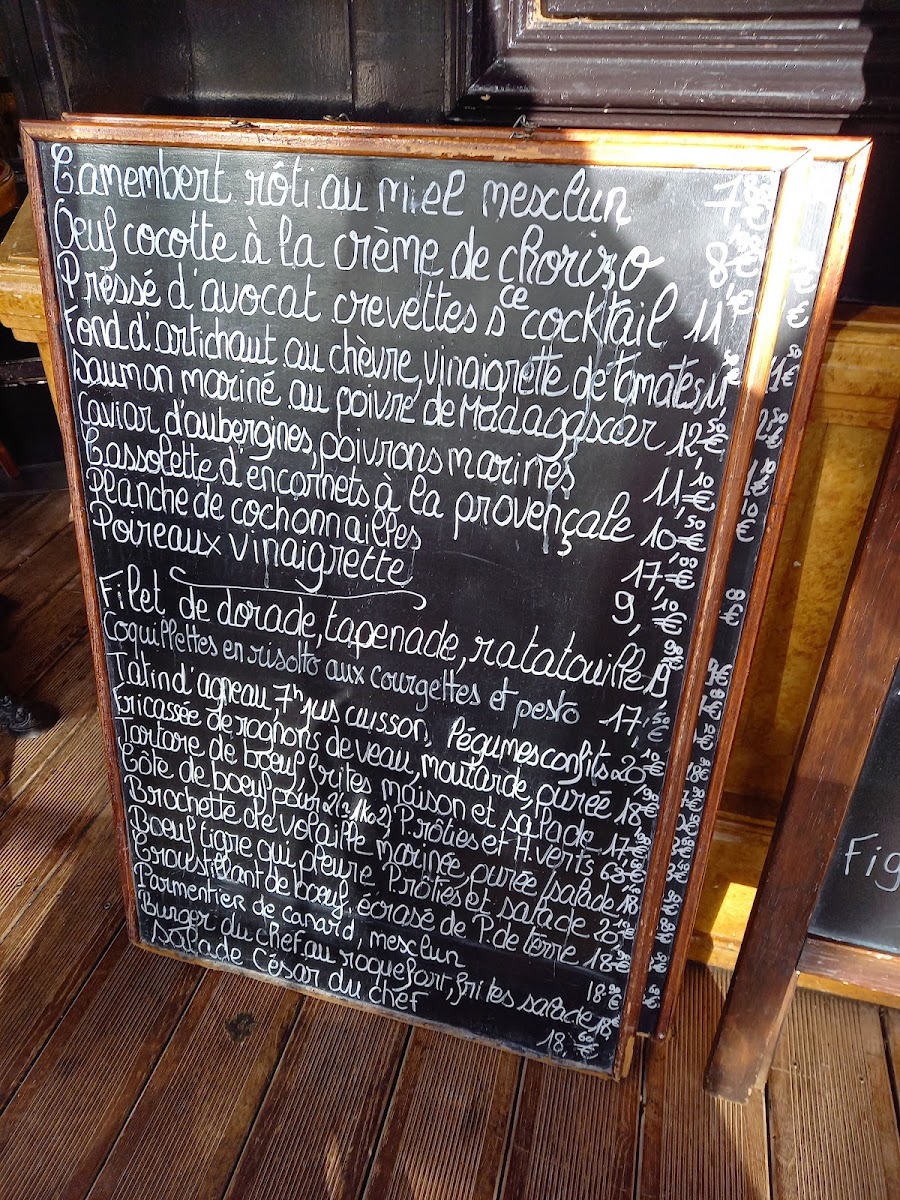 Camembert rôti au miel mesclun 7
Oeuf cocotte à la crème de chorizo 8,
Préssé d'avocat crevettes sce cocktail 11
Fond d'artichaut au chèvre, vinaigrette de tomates, 11
Saumon mariné au poivre de Madagascar 12,
Caviar d'aubergines, poivrons marinés 11,10€
Cassolette d'encornets à la provençale 10,
Planche de cochonnailles 17,
Poireaux vinaigrette 9,
Filet de dorade, tapenade, ratatouille 19
Coquillettes en risotto aux courgettes et pesto 17,
Tatin d'agneau 7h jus cuisson, légumes confits 20
Fricassée de rognons de veau, moutarde, purée 18
Tartare de boeuf frites maison et salade 17,
Côte de boeuf pour 2 P.rôties et H.verts
Brochette de volaille marinée purée salade 18
Boeuf tigre qui pleure P.rôties et salade
Croustillant de boeuf, écrasé de P.de terre 18
Parmentier de canard, mesclun 18
Burger du chef au roquefort, frites salade 18
Salade César du chef 18,
Fig